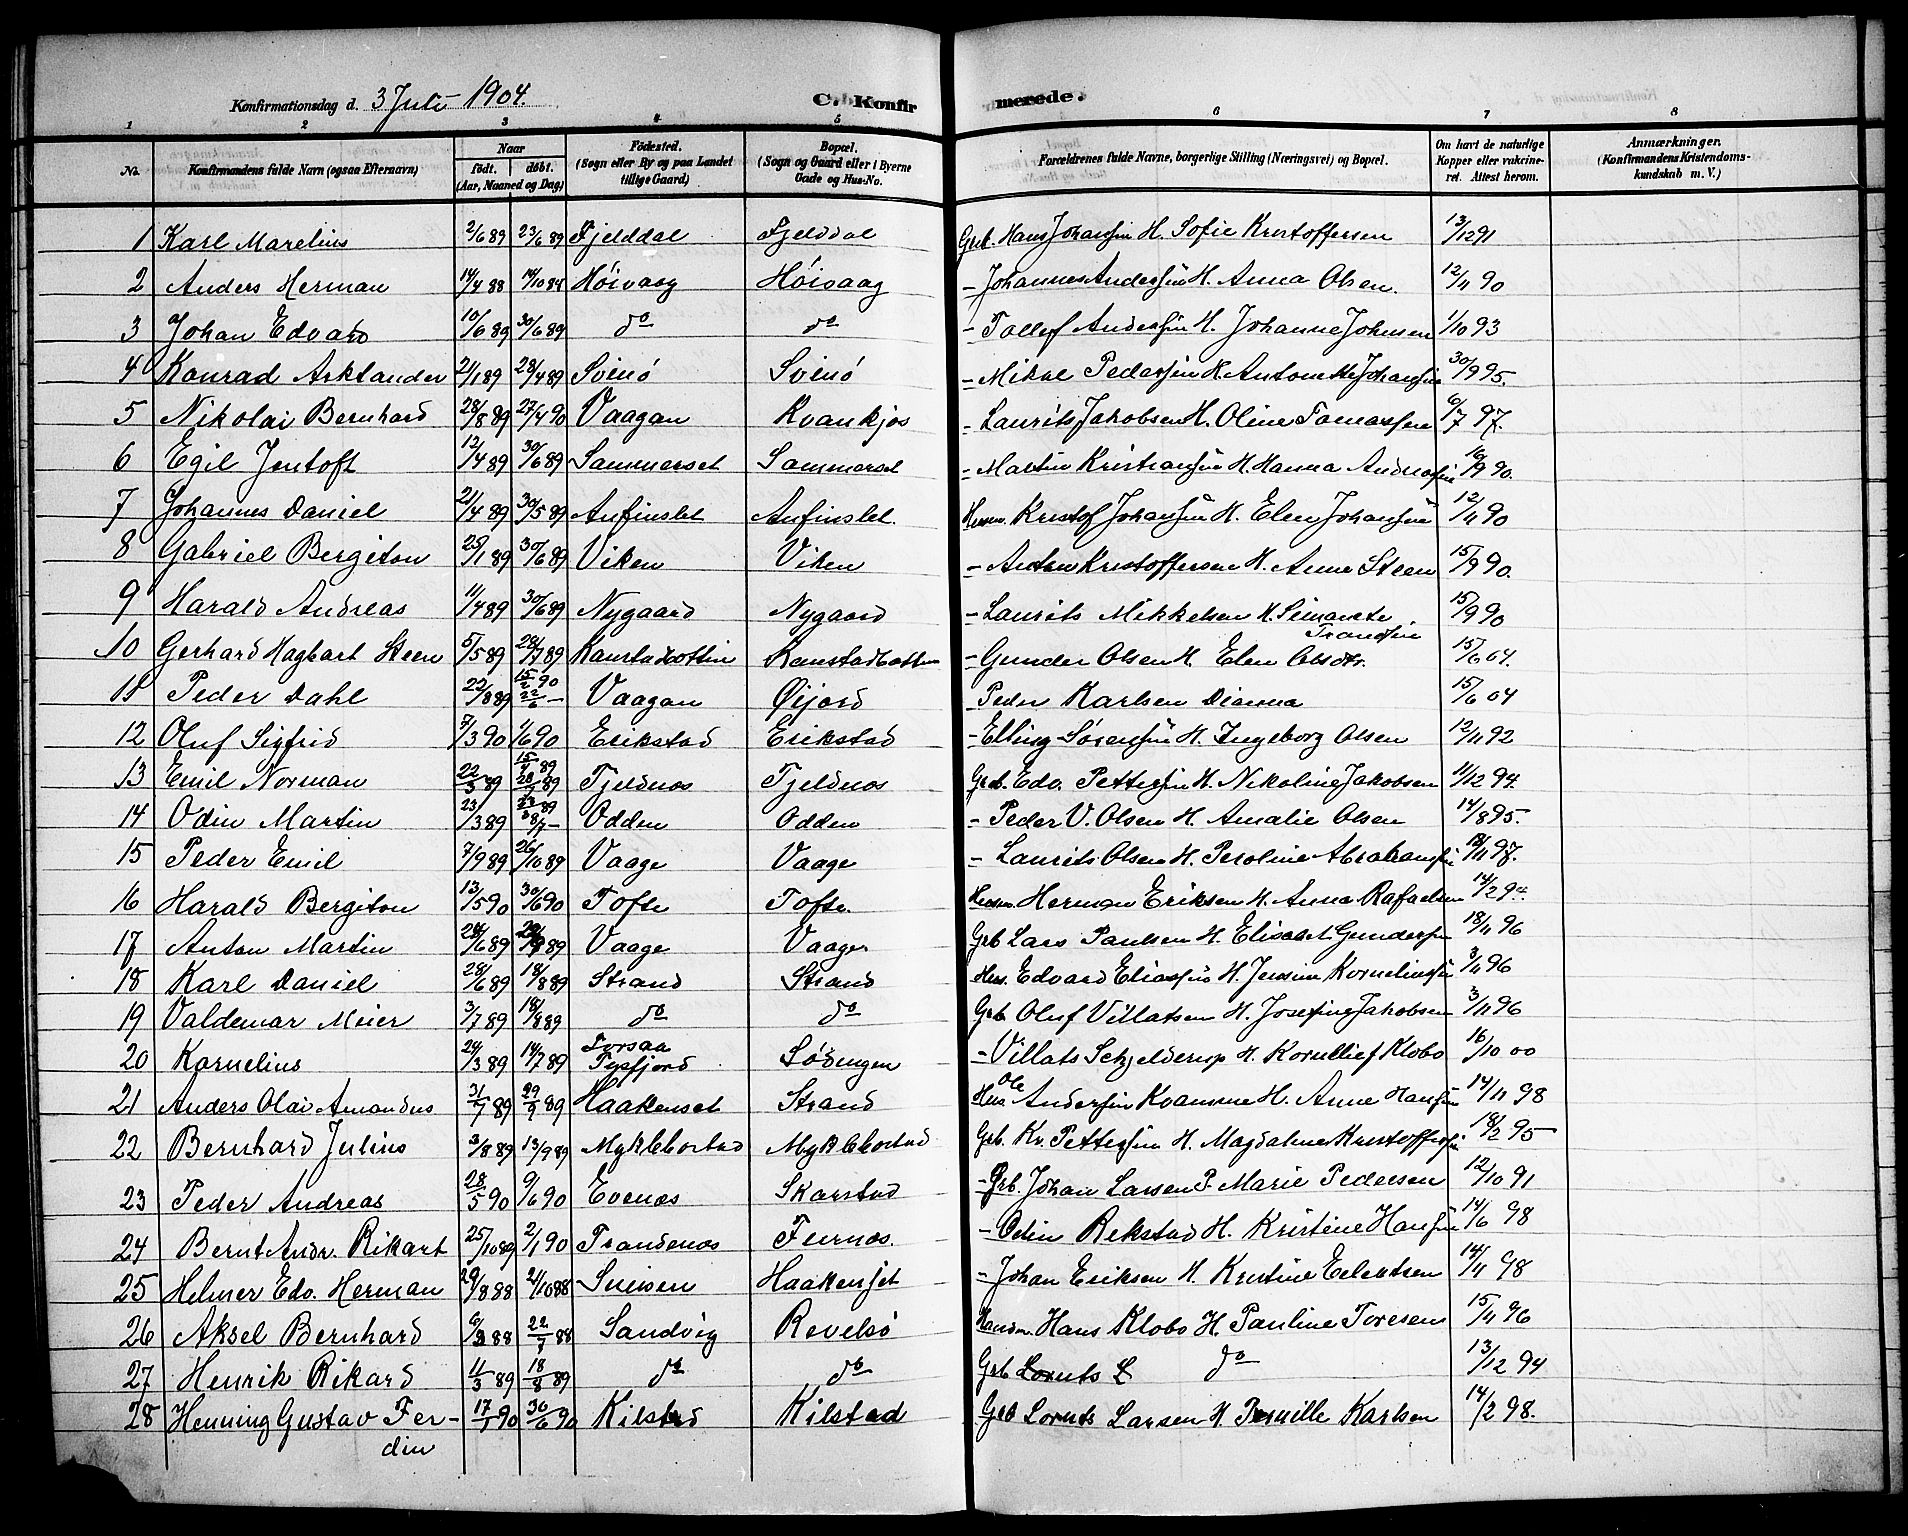 Konfirmationsdag d. 3 Juli 1904.
C. Konfirmerede.
1 2 3 4 5 6 7 8
No. Konfirmandens fulde Navn (ogsaa Efternavn) Naar født. døbt. (Aar, Maaned og Dag) Fødested. (Sogn eller By og paa Landet tillige Gaard) Bopæl. (Sogn og Gaard eller i Byerne Gade og Hus-No. Forældrenes fulde Navne, borgerlige Stilling (Næringsvei) og Bopæl. Om havt de naturlige Kopper eller vakcineret. Attest herom. Anmærkninger. (Konfirmandens Kristendomskundskab m. V.)
1 Karl Marelius 2/6 89 23/6 89 Fjelddal Fjelddal Grb. Hans Johansen H. Sofie Kristoffersen 13/12 91
2 Anders Herman 14/4 88 14/10 89 Høivaag Høivaag - Johannes Andersen H. Anna Olsen. 12/11 90
3 Johan Edvard 10/6 89 30/6 89 do do - Tollef Andersen H. Johanne Johnsen 1/10 93
4 Konrad Arklander 21/1 89 28/4 89 Svinø Svinø - Mikal Pedersen H. Antonette Johansen 30/9 95.
5 Nikolai Bernhard 28/8 89 27/4 90 Vaagan Kvankjos - Laurits Jakobsen H. Oline Tomassen 6/7 97.
6 Egil Jentoft 12/4 89 30/6 89 Sammerset Sammerset - Martin Kristiansen H. Hanna Andreasen 16/9 90.
7 Johannes Daniel 21/4 89 30/5 89 Anfinslet Anfinslet. Husm. Kristof Johansen H. Elen Johansen 12/11 90
8 Gabriel Bergiton 25/1 89 30/6 89 Viken Viken - Anton Kristoffersen H. Anne Steen 15/9 90.
9 Harald Andreas 11/4 89 30/6 89 Nygaard Nygaard - Laurits Mikkelsen H. 15/9 90
10 Gerhard Hagbart Steen 5/5 89 28/7 89 Kanstadbotten Kanstadbotten - Gunder Olsen H. Elen Olsdtr. 15/6 04.
11 Peder Dahl 22/8 89 15/2 90 22/6 - Vaagan Øijord - Peder Karlsen Dianna 15/6 04
12 Oluf Sigfrid 7/3 90 1/6 90 Erikstad Erikstad - Elling Sørensen H. Ingeborg Olsen 12/11 92
13 Emil Norman 22/3 89 15/4 89 89 Fjeldnes Fjeldnes Grb. Edv. Pettersen H. Nikoline Jakobsen 11/12 94.
14 Odin Martin 23/3 89 89 Odden Odden - Peder V. Olsen H. Amalie Olsen 14/8 95.
15 Peder Emil 7/9 89 26/10 89 Vaage Vaage - Laurits Olsen H. Peroline Abrahamsen 97.
16 Harald Bergiton 13/5 90 30/6 90 Tofte Tofte. Husm. Herman Eriksen H. Anna Rafaelsen 14/2 94.
17 Anton Martin 24/6 89 89 Vaage Vaage Grb Lars Paulsen H. Elisabet Gundersen 18/11 96
18 Karl Daniel 28/6 89 18/8 89 Strand Strand Hus. Edvard Eliassen H. Jensine Kornelius 3/11 96
19 Valdemar Meier 3/7 89 18/8 89 do do Grb Oluf Villatsen H. Josefine Jakobsen 3/11 96
20 Kornelius 24/3 89 14/7 89 Korsaa Tysfjord Lødingen - Villats Schjelderup H. Klobo 16/10 00
21 Anders Olai Amandus 31/7 89 29/9 89 Haakenset Strand Hus Ole Andersen Kvamme H. Anne Hansen 14/11 98
22 Bernhard Julius 3/8 89 13/9 89 Myklebostad Myklebostad Grb. Kr. Pettersen H. Magdalene Kristoffersen 18/2 95
23 Peder Andreas 28/5 90 9/6 90 Evenes Skarstad - Grb. Johan Larsen P. Marie Pedersen 12/10 91
24 Bernt Andr. Rikart 25/10 89 2/1 90 Trandenes Furnes. - Odin Rekstad H. Kristine Hansen 14/6 98
25 Helmer Edv. Herman 29/8 88 21/10 88 Haakenset - Johan Eriksen H. Kristine Edvartsen 14/11 98
26 Aksel Bernhard 6/3 88 22/7 88 Sandvig Revelsø Husm. Hans Klobo H. Pauline Toresen 15/11 96
27 Henrik Rikard 11/3 89 18/8 89 do do Grb Lornts L do 13/12 94
28 Henning Gustav Fer- 17/1 90 30/6 90 Kilstad Kilstad Grb Lornts Larsen H. Pernille Karlsen 14/2 98.
din